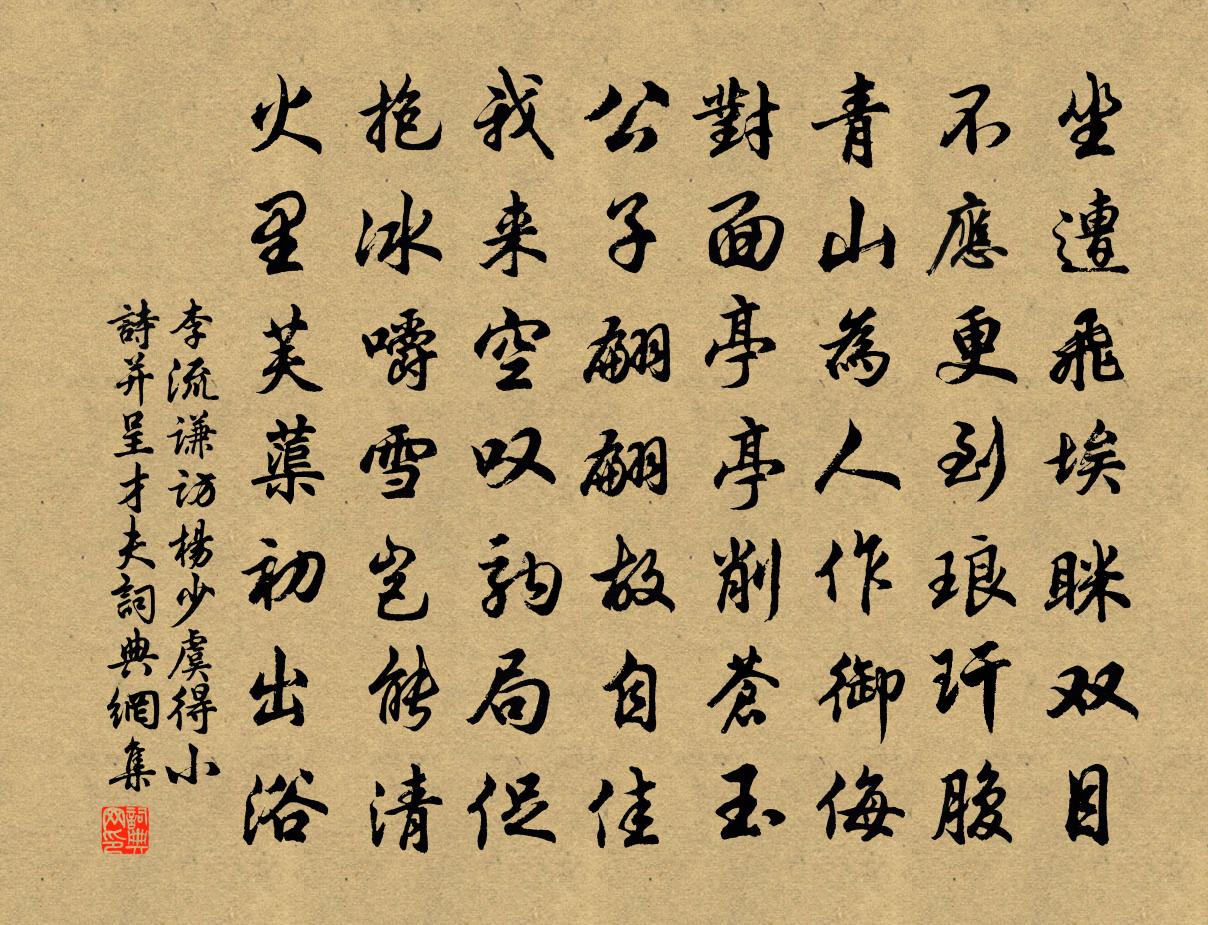 坐遭飛埃眯双目
不應更到琅玕腹
青山為人作御侮
對面亭亭削蒼玉
公子翩翩故自佳
我来空叹駒局促
抱冰嚼雪岂能清
火里芙蕖初出浴
李流谦访楊少虞得小
詩并呈才夫詞典網集
詞典
网印